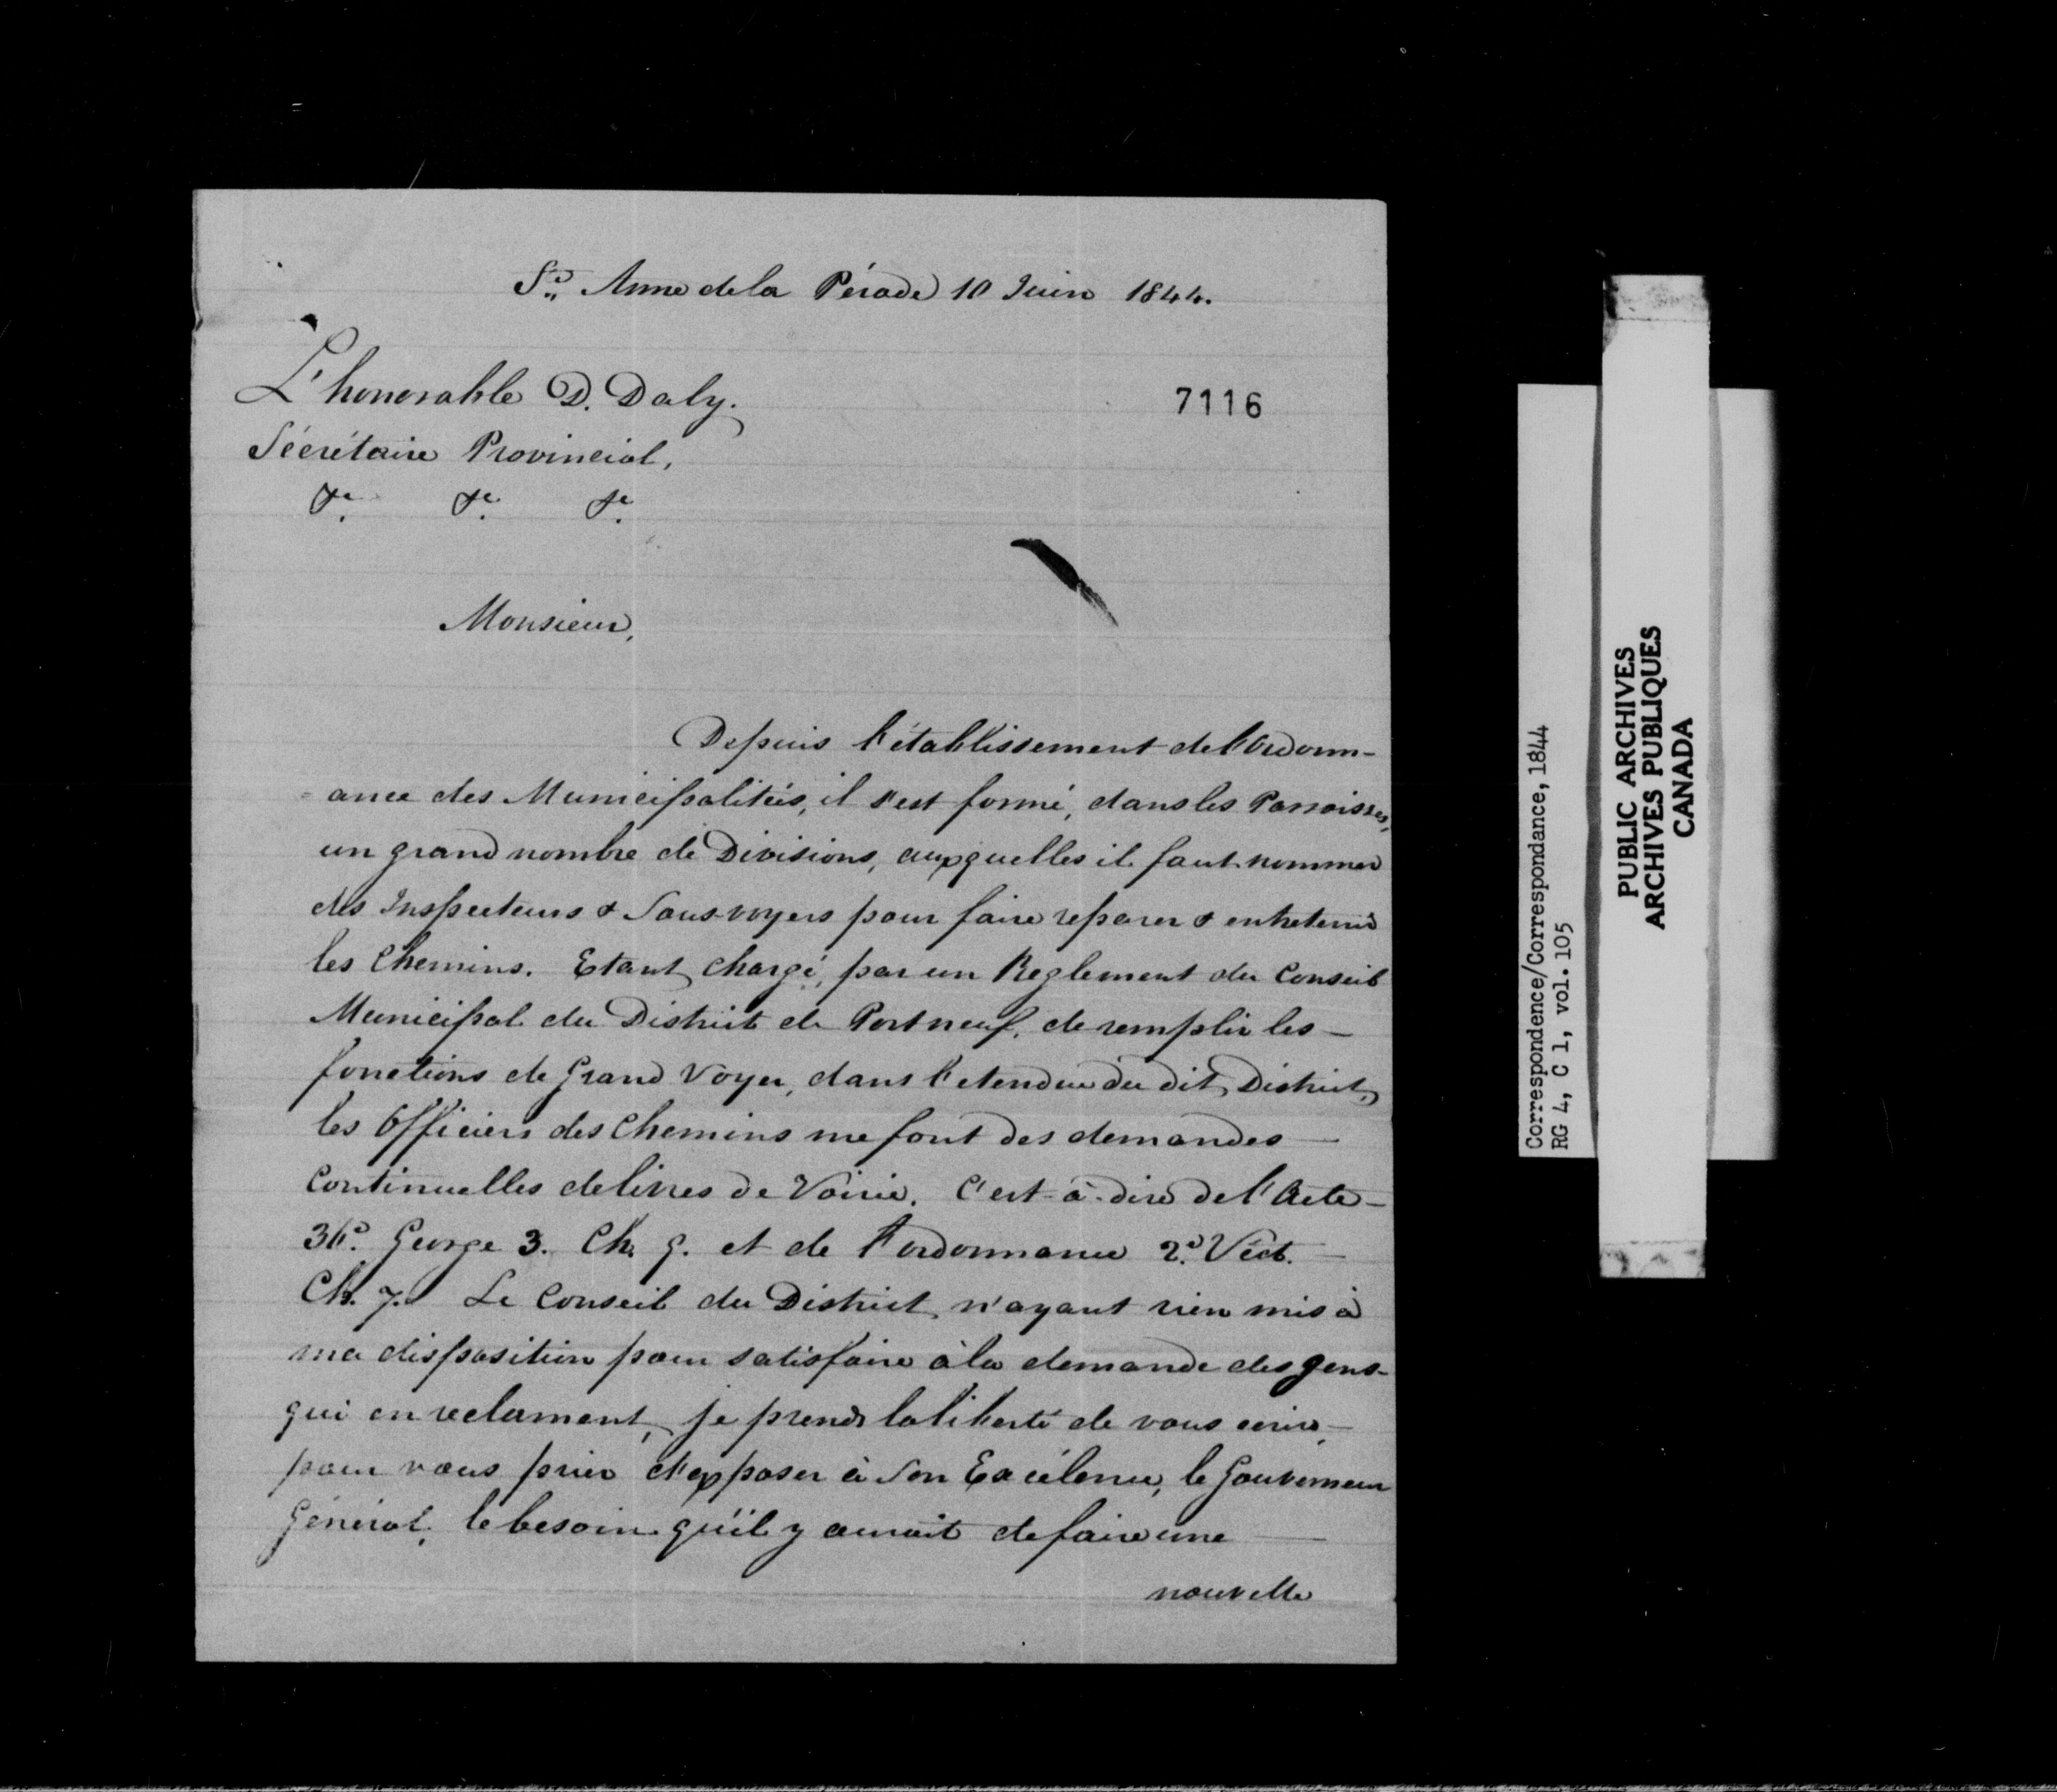 Ste Anne de la Pérade 10 Juin 1844.
L'honorable D. Daly.
7116
Sécrétaire Provincial,
&c. &c. &c.
Monsieur,
Depuis l'établissement de l'Ordonn-
ance des Municipalités, il s'est formé, dans les Paroisses,
un grand nombre de Divisions, auxquelles il faut nommer
des Inspecteurs & Sous-voyers pour faire reparer & entretenir
les Chemins. Etant chargé, par un Reglement du Conseil
Municipal du District de Portneuf, de remplir les —
fonctions de Grand Voyer, dans l'etendue du dit District,
les Officiers des Chemins me font des demandes —
Continuelles de livres de Voirie. C'est-à-dire de l'Acte —
36e. George 3. Ch. 9. et de l'ordonnance 2e. Vict. —
Ch. 7. Le Conseil du District n'ayant rien mis à
ma disposition pour satisfaire à la demande des gens-
qui en reclament, je prends la liberté de vous écrire, —
pour vous prier d'exposer à Son Excélence, le Gouverneur
Général, le besoin qu'il y aurait de faire une —
nouvelle
Correspondence/Correspondance, 1844
RG 4, C 1, vol. 105
PUBLIC ARCHIVES
ARCHIVES PUBLIQUES
CANADA